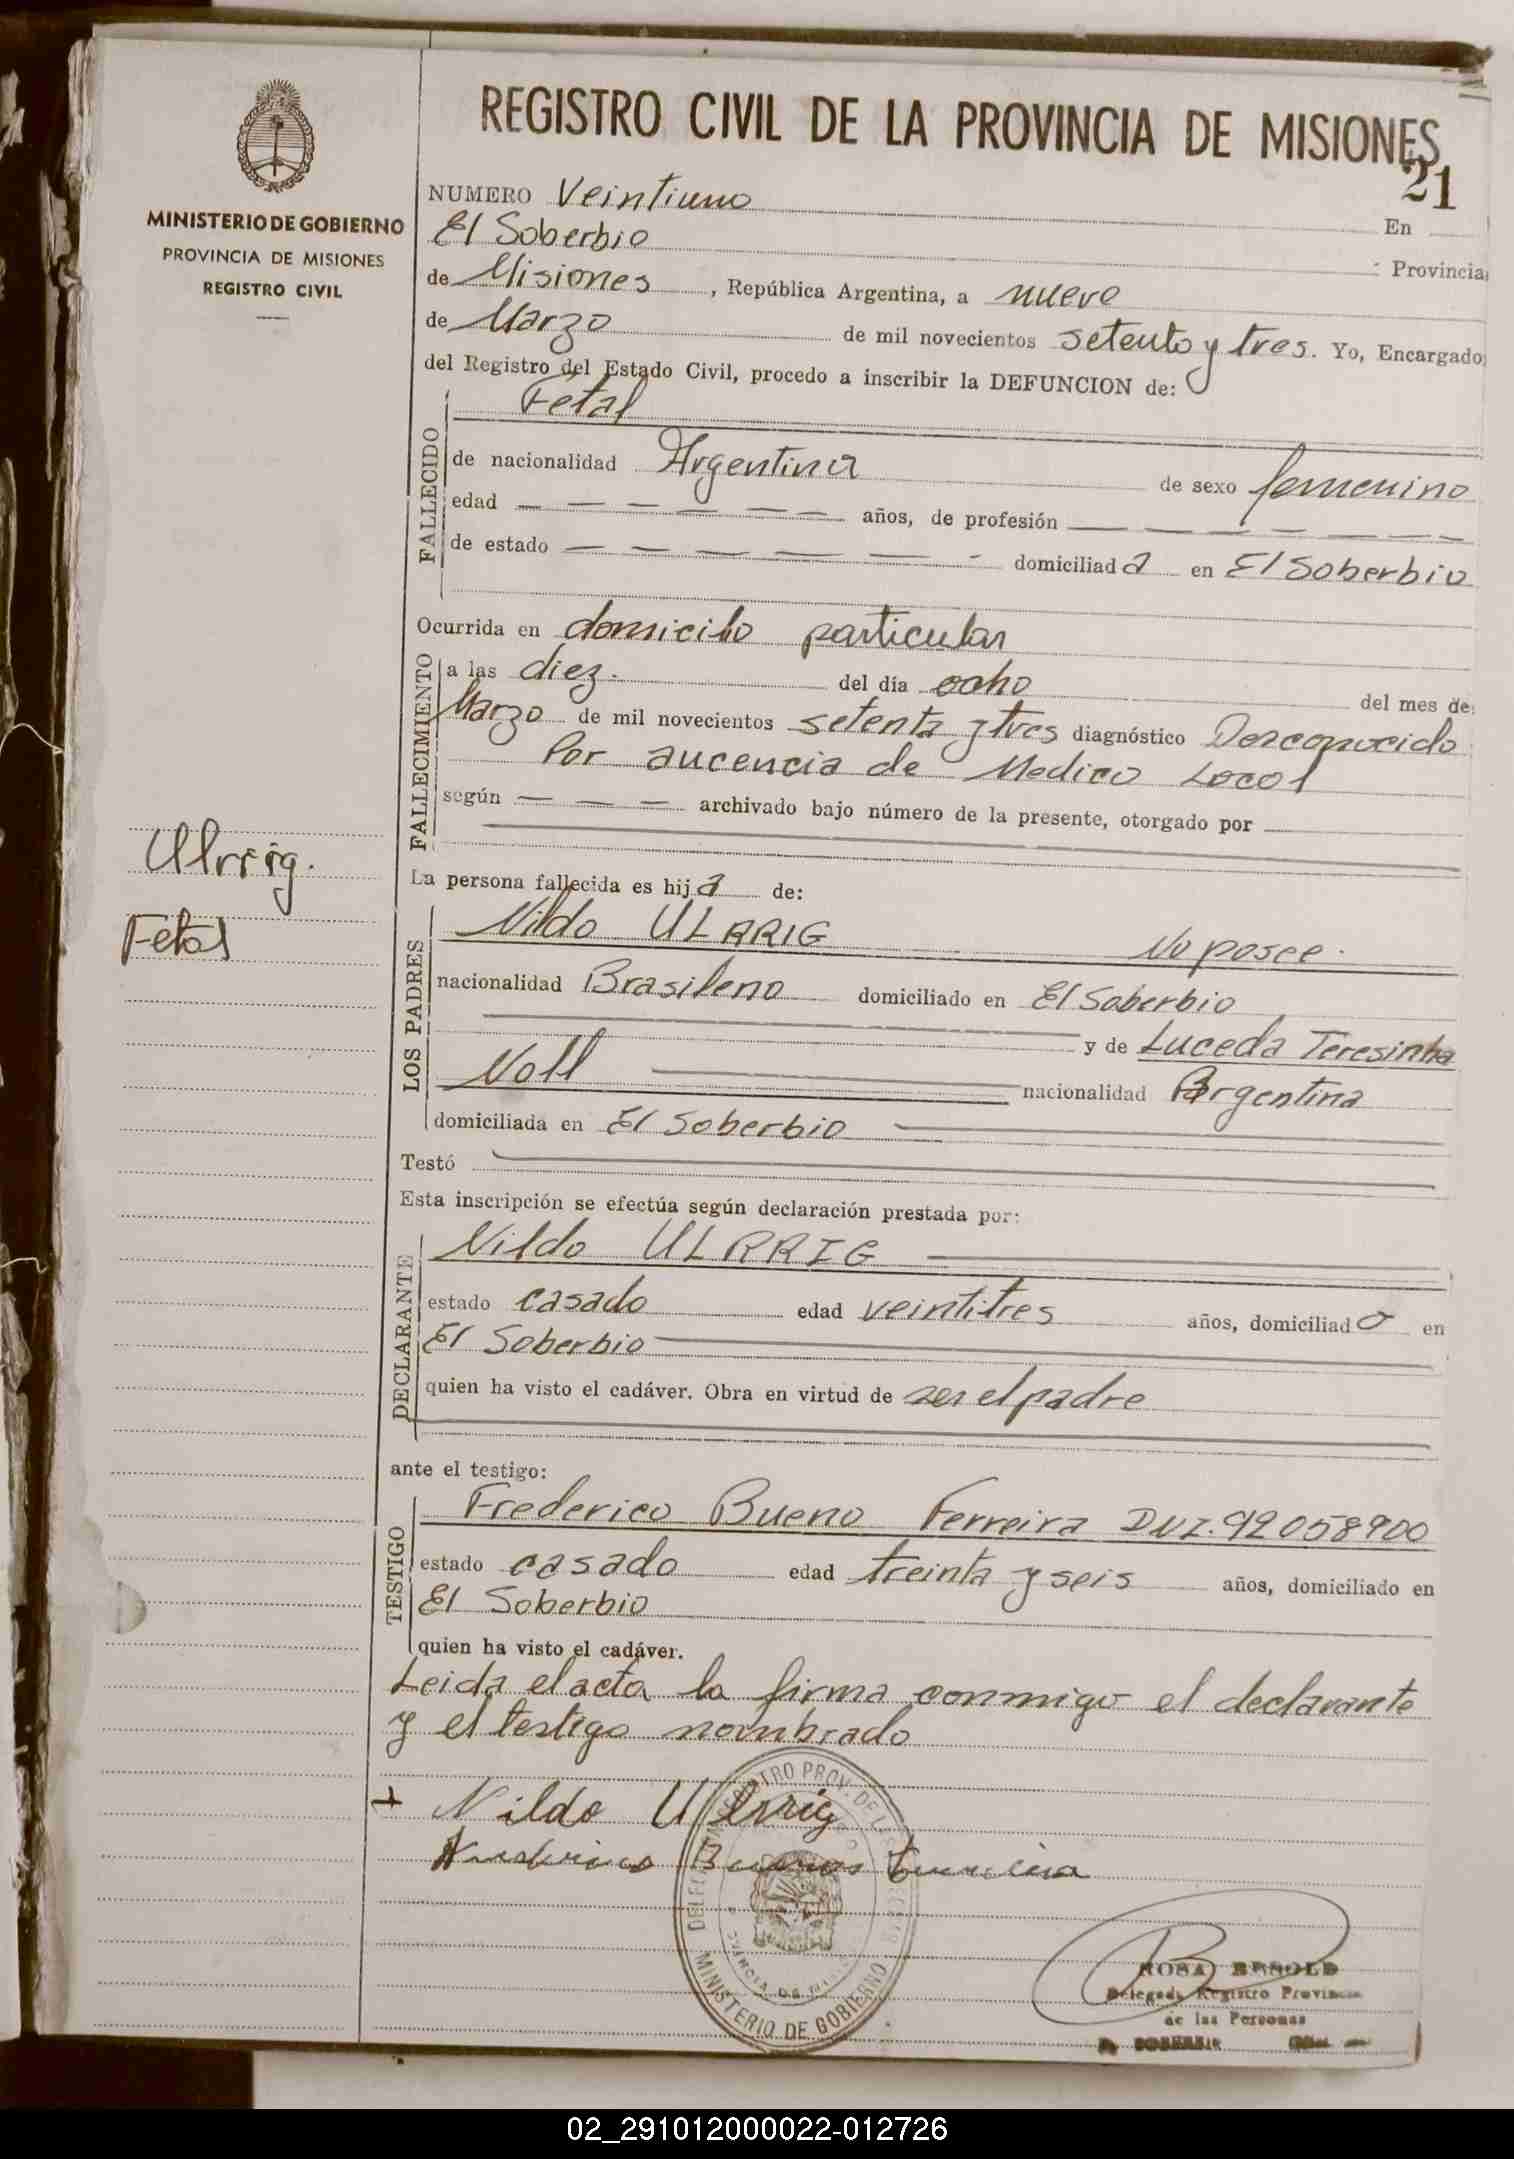 REGISTRO CIVIL DE LA PROVINCIA DE MISIONES
21
MINISTERIO DE GOBIERNO
PROVINCIA DE MISIONES
REGISTRO CIVIL
NUMERO Veintiuno En
El Soberbio Provincia
de Misiones, República Argentina, a nueve
de Marzo de mil novecientos setenta y tres. Yo, Encargado
del Registro del Estado Civil, procedo a inscribir la DEFUNCION de:
Fetal
FALLECIDO
de nacionalidad Argentina de sexo femenino
edad — — — — — — años, de profesión — — — — — —
de estado — — — — — - domiciliada en El Soberbio
Ocurrida en domicilio particular
FALLECIMIENTO
a las diez. del día ocho del mes de:
Marzo de mil novecientos setenta y tres diagnóstico Desconocido
Por aucencia de Medico Local
según — — — archivado bajo número de la presente, otorgado por
Ulrrig.
Fetal
La persona fallecida es hija de:
LOS PADRES
Nildo ULRRIG No posee.
nacionalidad Brasileno domiciliado en El Soberbio
y de Luceda Teresinha
Noll nacionalidad Argentina
domiciliada en El Soberbio
Testó
Esta inscripción se efectúa según declaración prestada por:
DECLARANTE
Nildo ULRRIG
estado casado edad veintitres años, domiciliado en
El Soberbio
quien ha visto el cadáver. Obra en virtud de ser el padre
ante el testigo:
TESTIGO
Frederico Bueno Ferreira DNI. 92058900
estado casado edad treinta y seis años, domiciliado en
El Soberbio
quien ha visto el cadáver.
Leida el acta la firma conmigo el declarante
y el testigo nombrado
Nildo Ulrrig
Frederico Buenos Ferreira
MINISTERIO DE GOBIERNO
ROSA BESOLD
Delegada Registro Provincial
de las Personas
02_291012000022-012726